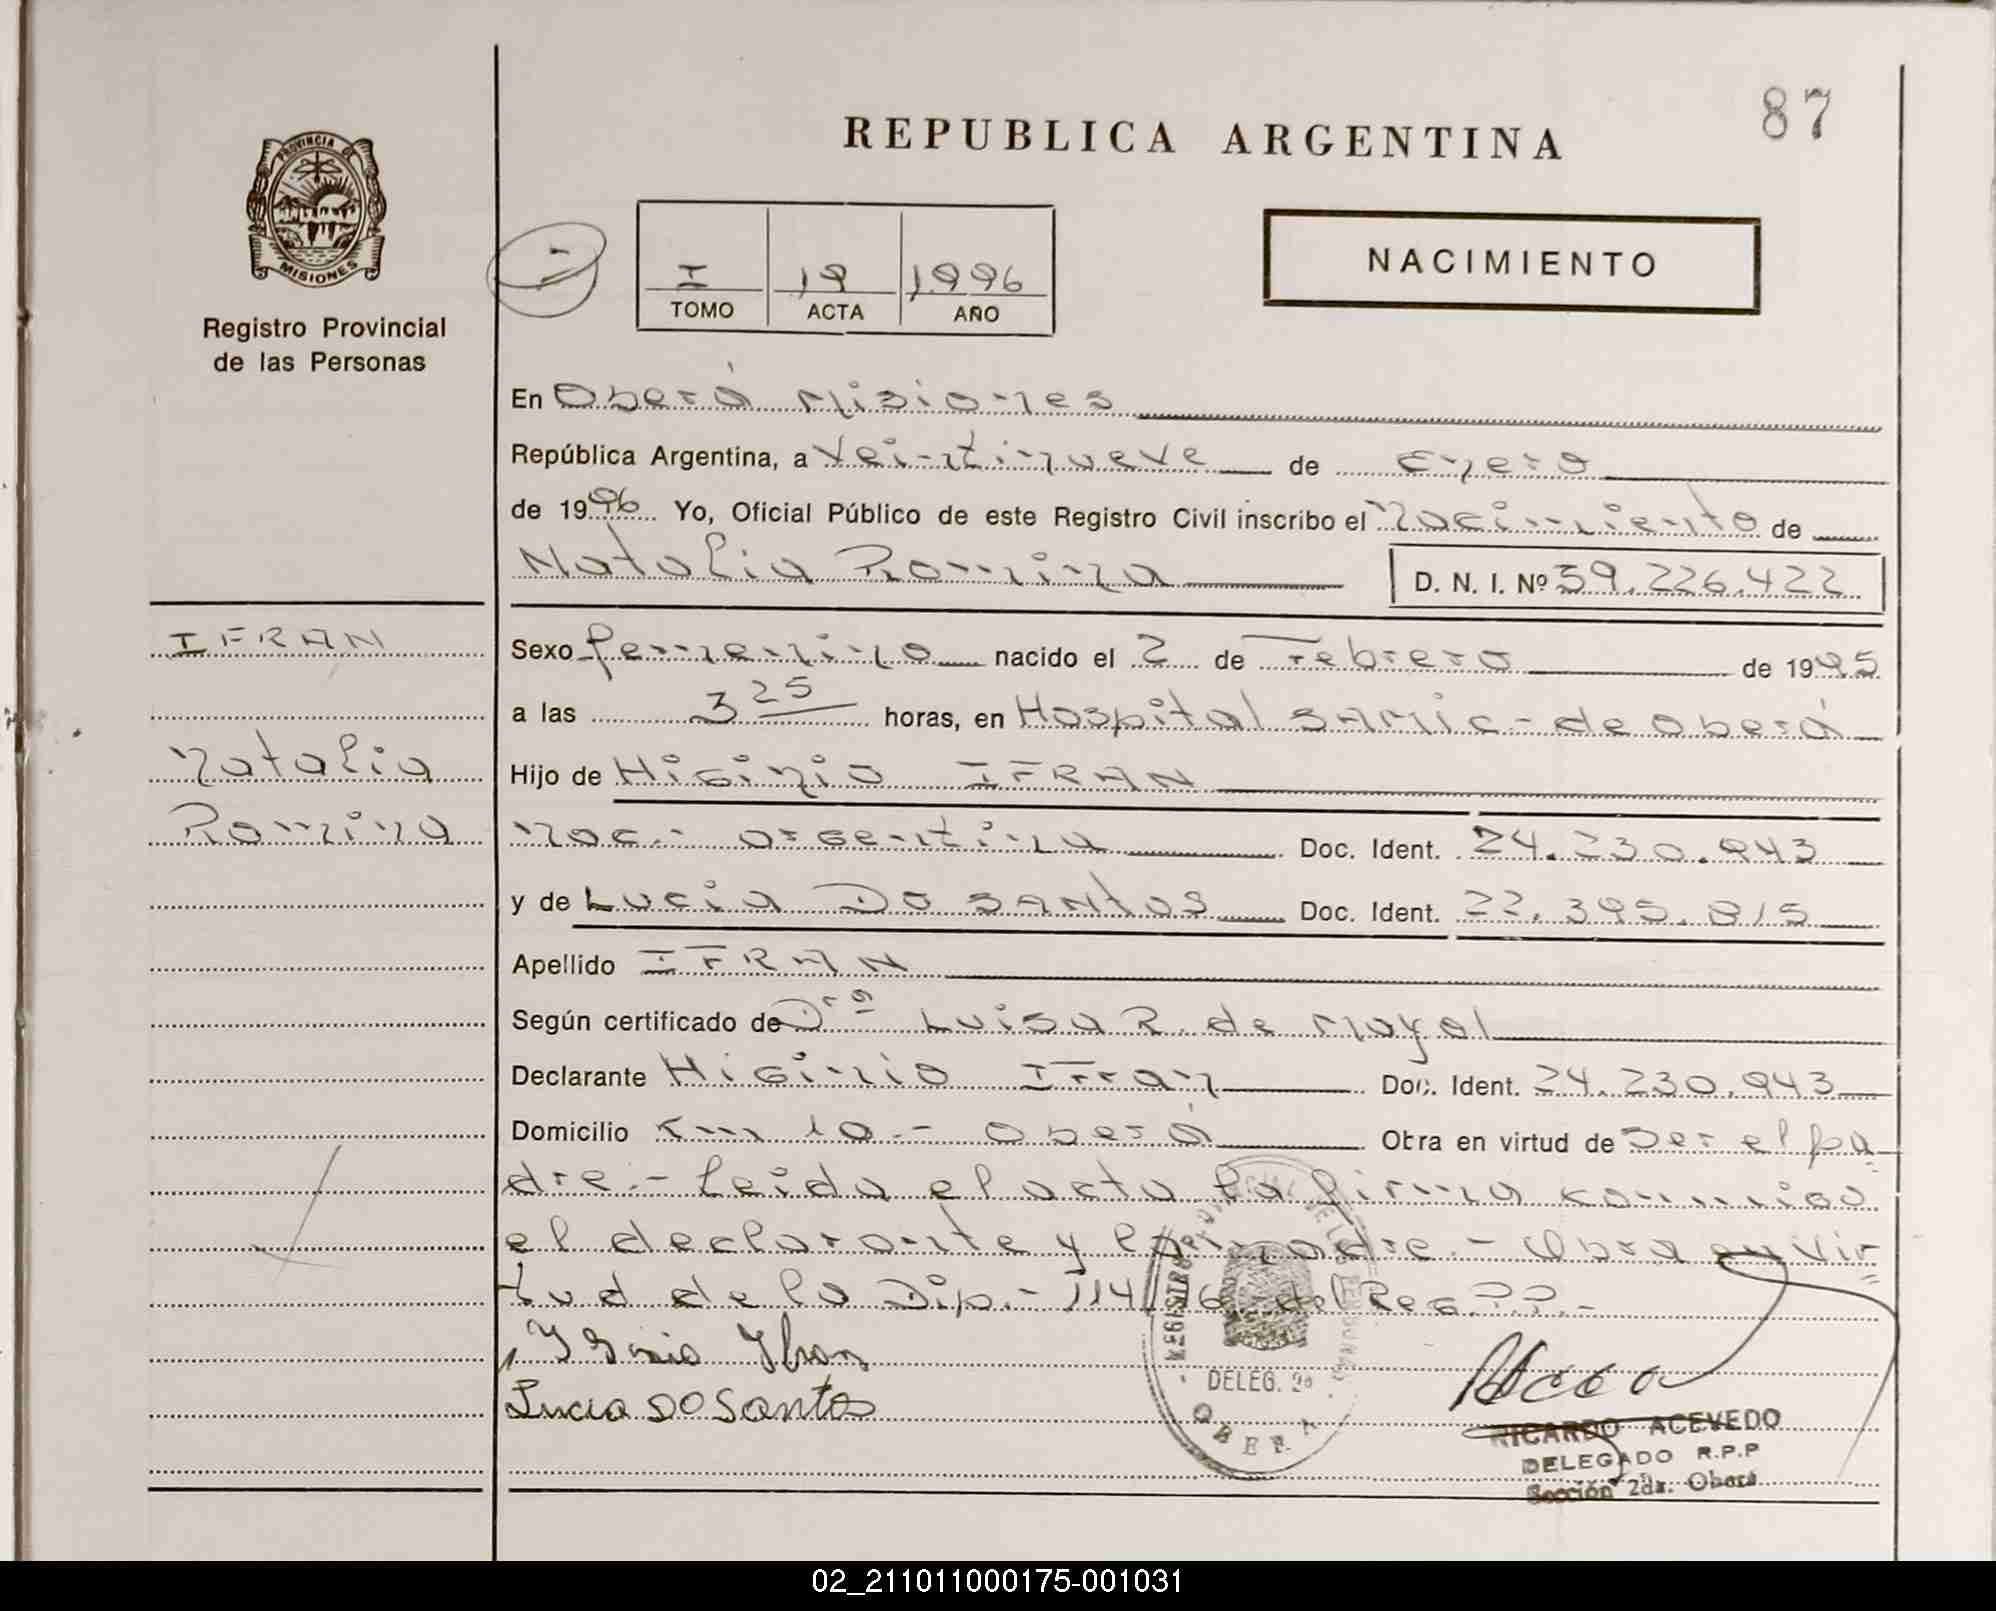 87
REPUBLICA ARGENTINA
PROVINCIA DE
MISIONES
Registro Provincial
de las Personas
I 19 1996
TOMO ACTA AÑO
NACIMIENTO
En Oberá Misiones
República Argentina, a Veintinueve de Enero
de 1996 Yo, Oficial Público de este Registro Civil inscribo el Nacimiento de
Natalia Romina D. N. I. Nº 39.226.422
IFRAN
Natalia
Romina
Sexo femenino nacido el 2 de Febrero de 1995
a las 3 25 horas, en Hospital SAMIC - de Oberá
Hijo de Higinio IFRAN
Nac.- argentina Doc. Ident. 24.230.943
y de Lucia DO SANtOS Doc. Ident. 22.395.815
Apellido IFRAN
Según certificado de Drª Luisa R. de Mayol
Declarante Higinio Ifran Doc. Ident. 24.230.943
Domicilio Km 10.- Oberá Obra en virtud de Ser el pa
dre.- Leida el acta la firma conmigo
el declarante y la madre.- Obra en Vir
tud de la Dip.- 114/ del Reg. P.P.-
Lucia DO Santos
DELEG. 2ª
OBERA
RICARDO ACEVEDO
DELEGADO R.P.P
Sección 2da. Oberá
02_211011000175-001031